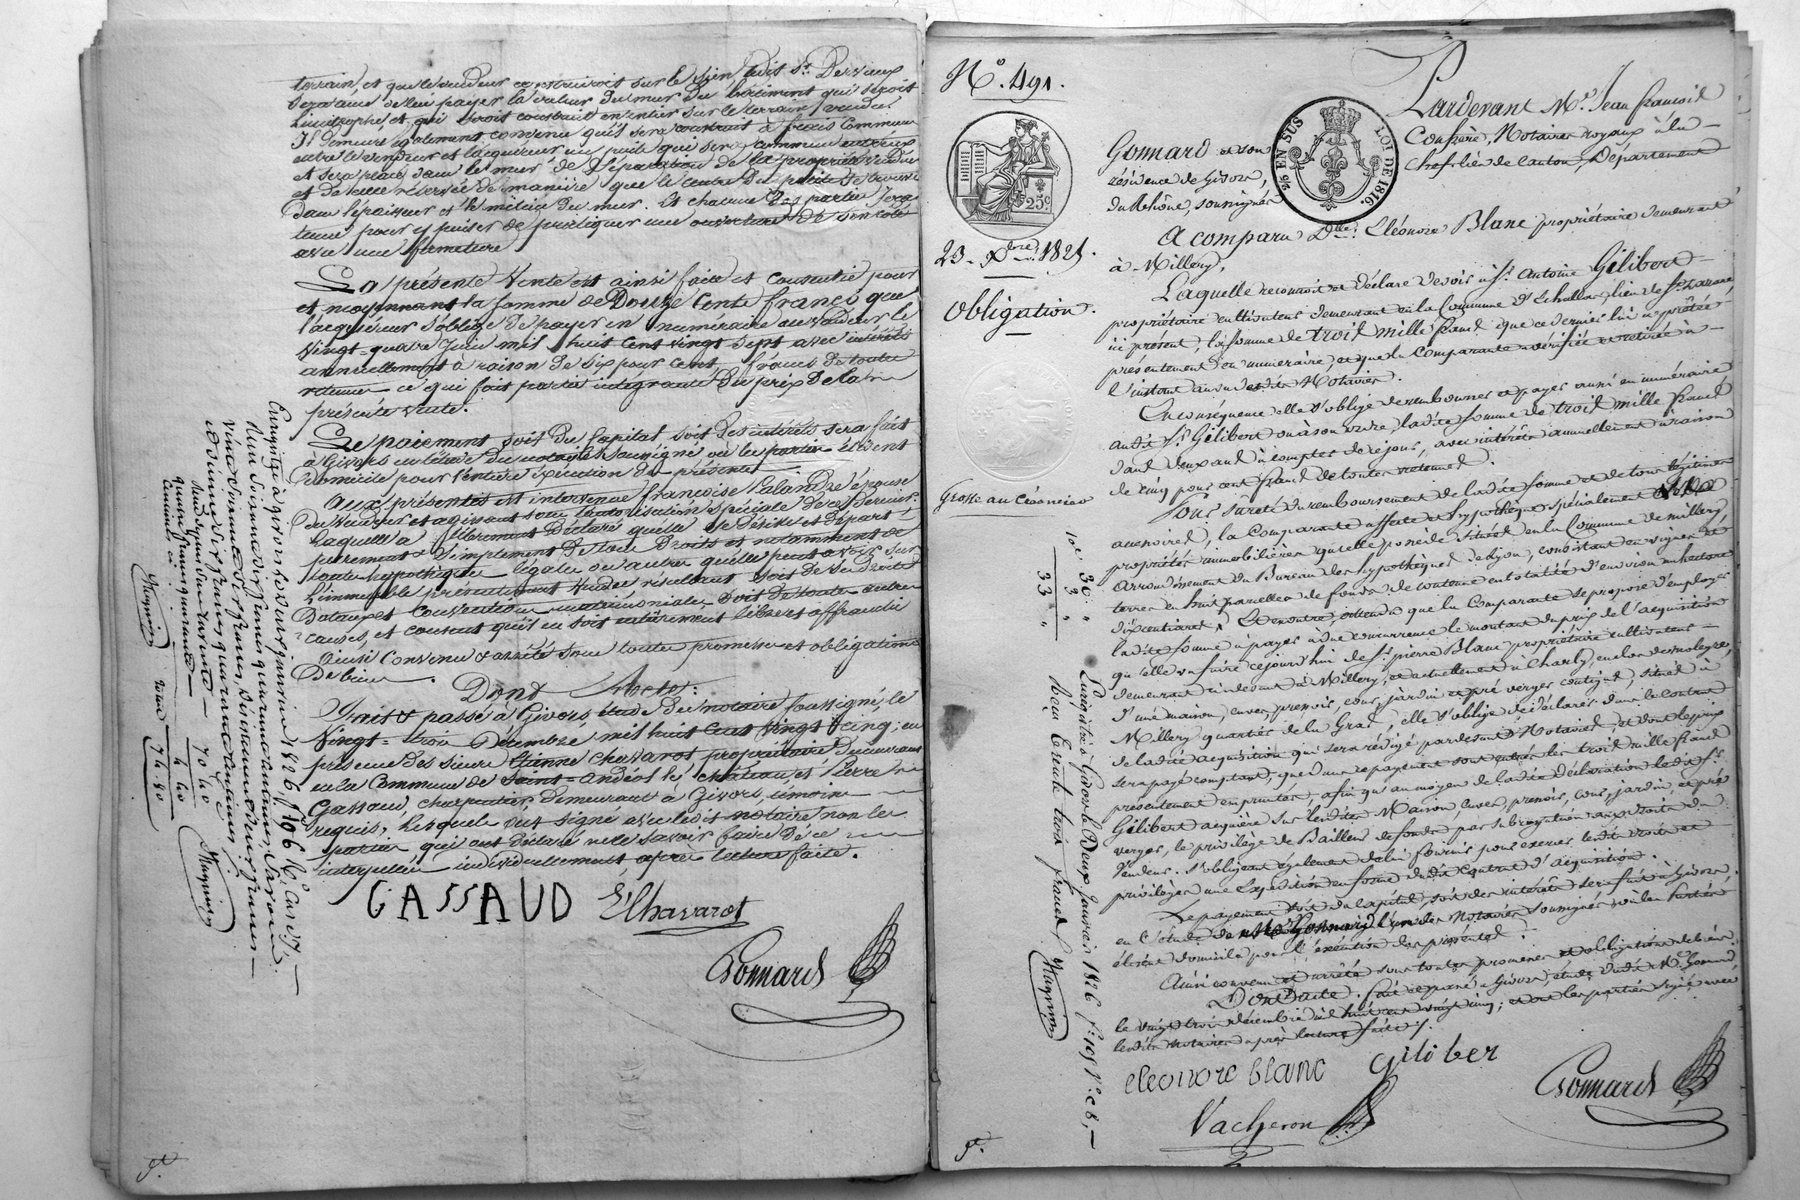 terrain, et que le vendeur construisoit sur le sien, ledit Sr. Dervieux
sera tenu de lui payer la valeur du mur du batiment qui seroit
limitrophe et qui avoit construit en entier sur le terrain vendu.
Il demeure également convenu qu'il sera construit à frais communs
entre le vendeur et l'acquéreur un puits qui sera commun entr'eux
et sera placé dans le mur de séparation de la propriété vendue
et de celle réservée de manière que le centre du puits se trouve
dans l'épaisseur et le milieu du mur. Et chacune des parties sera
tenue pour y puiser de pratiquer une ouverture de son coté
avec une fermeture.
La présente Vente est ainsi faite et consentie pour
et moyennant la somme de Douze Cents francs que
l'acquéreur s'oblige de payer en numéraire au vendeur le
vingt-quatre juin mil huit cent vingt sept avec intérêts
annuellement à raison de six pour cent francs de toute
retenue ce qui fait partie intégrante du prix de la
présente vente.
Le paiement soit du Capital soit des intérêts sera fait
à Givors en l'étude du notaire soussigné où les parties élisent
domicile pour l'entière exécution des présentes
Aux présentes est intervenue françoise épouse
du vendeur et agissant sous l'autorisation spéciale de ce dernier
Laquelle a librement déclaré qu'elle se désiste et départ
purement & simplement de tous droits et notamment de
toute hypothèque légale ou autre qu'elle peut avoir sur
l'immeuble présentement vendu résultant soit de sa
Dotaux et Convention matrimoniale soit de toute autre
causes, et consent qu'il en soit entièrement libéré et affranchi
Ainsi Convenu & arrêté sous toutes promesses et obligations
De biens.
Dont Acte:
Fait & passé à Givors, étude du notaire soussigné, le
Vingt-trois Décembre mil huit Cent Vingt Cinq, en
présence des sieurs Etienne Chavarot propriétaire demeurant
en la Commune de Saint-Andéol le château, et Pierre
Gassaud, charpentier demeurant à Givors, témoins
requis, lesquels ont signé avec ledit notaire non les
parties qui ont déclaré ne le savoir faire de ce
interpellées individuellement après lecture faite.
GASSAUD
Chavarot
Gonnard
Enregistré à Givors le deux janvier 1826 fo. 106
Magnin
4 40
70 40
74.80
Magnin
N°. 491.
LOI DE 1816.
26 EN SUS
25c
23 Xbre 1825.
Obligation.
Grosse au Créancier
Pardevant Me. Jean françois
Gonnard et son Confrère, Notaires royaux à la
résidence de Givors, chef-lieu de canton, Département
du Rhône, soussignés
A comparu Dlle. Eléonore Blanc propriétaire demeurant
à Millery,
Laquelle reconnoit et déclare devoir à Sr. Antoine Gilibert
propriétaire cultivateur demeurant en la Commune d'Echallas, lieu de St. Lazare
ici présent, la somme de trois mille francs que ce dernier lui a prêtée
présentement en numéraire, et que la Comparante a vérifiée et retirée à
l'instant au vu desdits Notaires.
En conséquence elle s'oblige de rembourser et payer aussi en numéraire
audit Sr. Gilibert ou à son ordre ladite somme de trois mille francs
dans deux ans à compter de ce jour, avec intérêts annuellement à raison
de cinq pour cent francs de toutes retenues.
Pour sureté du remboursement de ladite somme et de tous légitimes
accessoires, la Comparante affecte et hypothèque spécialement
propriétés immobilières qu'elle possède situées en la Commune de Millery,
arrondissement du Bureau des hypothèques de Lyon, consistant en vignes et
terres en huit parcelles de fonds de contenue en totalité d'environ un hectare
dix centiares. En outre, attendu que la Comparante se propose d'employer
ladite somme à payer à due concurrence le montant du prix de l'acquisition
qu'elle va faire cejourd'hui de Sr. pierre Blanc propriétaire cultivateur
demeurant ci-devant à Millery, et actuellement à Charly,
d'une maison, cuves, pressoir, cour, jardin et pré verger contigus, situés à
Millery quartier de la Gras, elle s'oblige de déclarer dans le contrat
de ladite acquisition qui sera rédigé pardevant Notaires, et dont le prix
sera payé comptant, que dans ce payement sont entrés les trois mille francs
présentement empruntés, afin qu'au moyen de ladite déclaration ledit Sr.
Gilibert acquière sur lesdites Maison, cuves, pressoir, cour, jardin, et pré
verger, le privilège de Bailleur de fonds par subrogation aux droits du
vendeur. S'obligeant également de lui fournir pour exercer lesdits droits et
privilèges une Expédition en forme dudit Contrat d'acquisition.
Le payement soit du capital, soit des intérêts sera fait à Givors,
en l'étude de Me. Gonnard l'un des Notaires soussignés où les parties
élisent domicile pour l'exécution des présentes.
Ainsi convenu et arrêté sous toutes promesses et obligations de biens.
Dont Acte. fait et passé à Givors, étude dudit Me. Gonnard,
le vingt trois décembre mil huit cent vingt cinq; et ont les parties signé avec
lesdits Notaires après lecture faite.
eleonore blanc
Giliber
Gonnard
Vacheron
10e. 30 "
3 "
33 "
Enregistré à Givors le Deux Janvier 1826 fo. 105
Reçu trente trois francs
Magnin